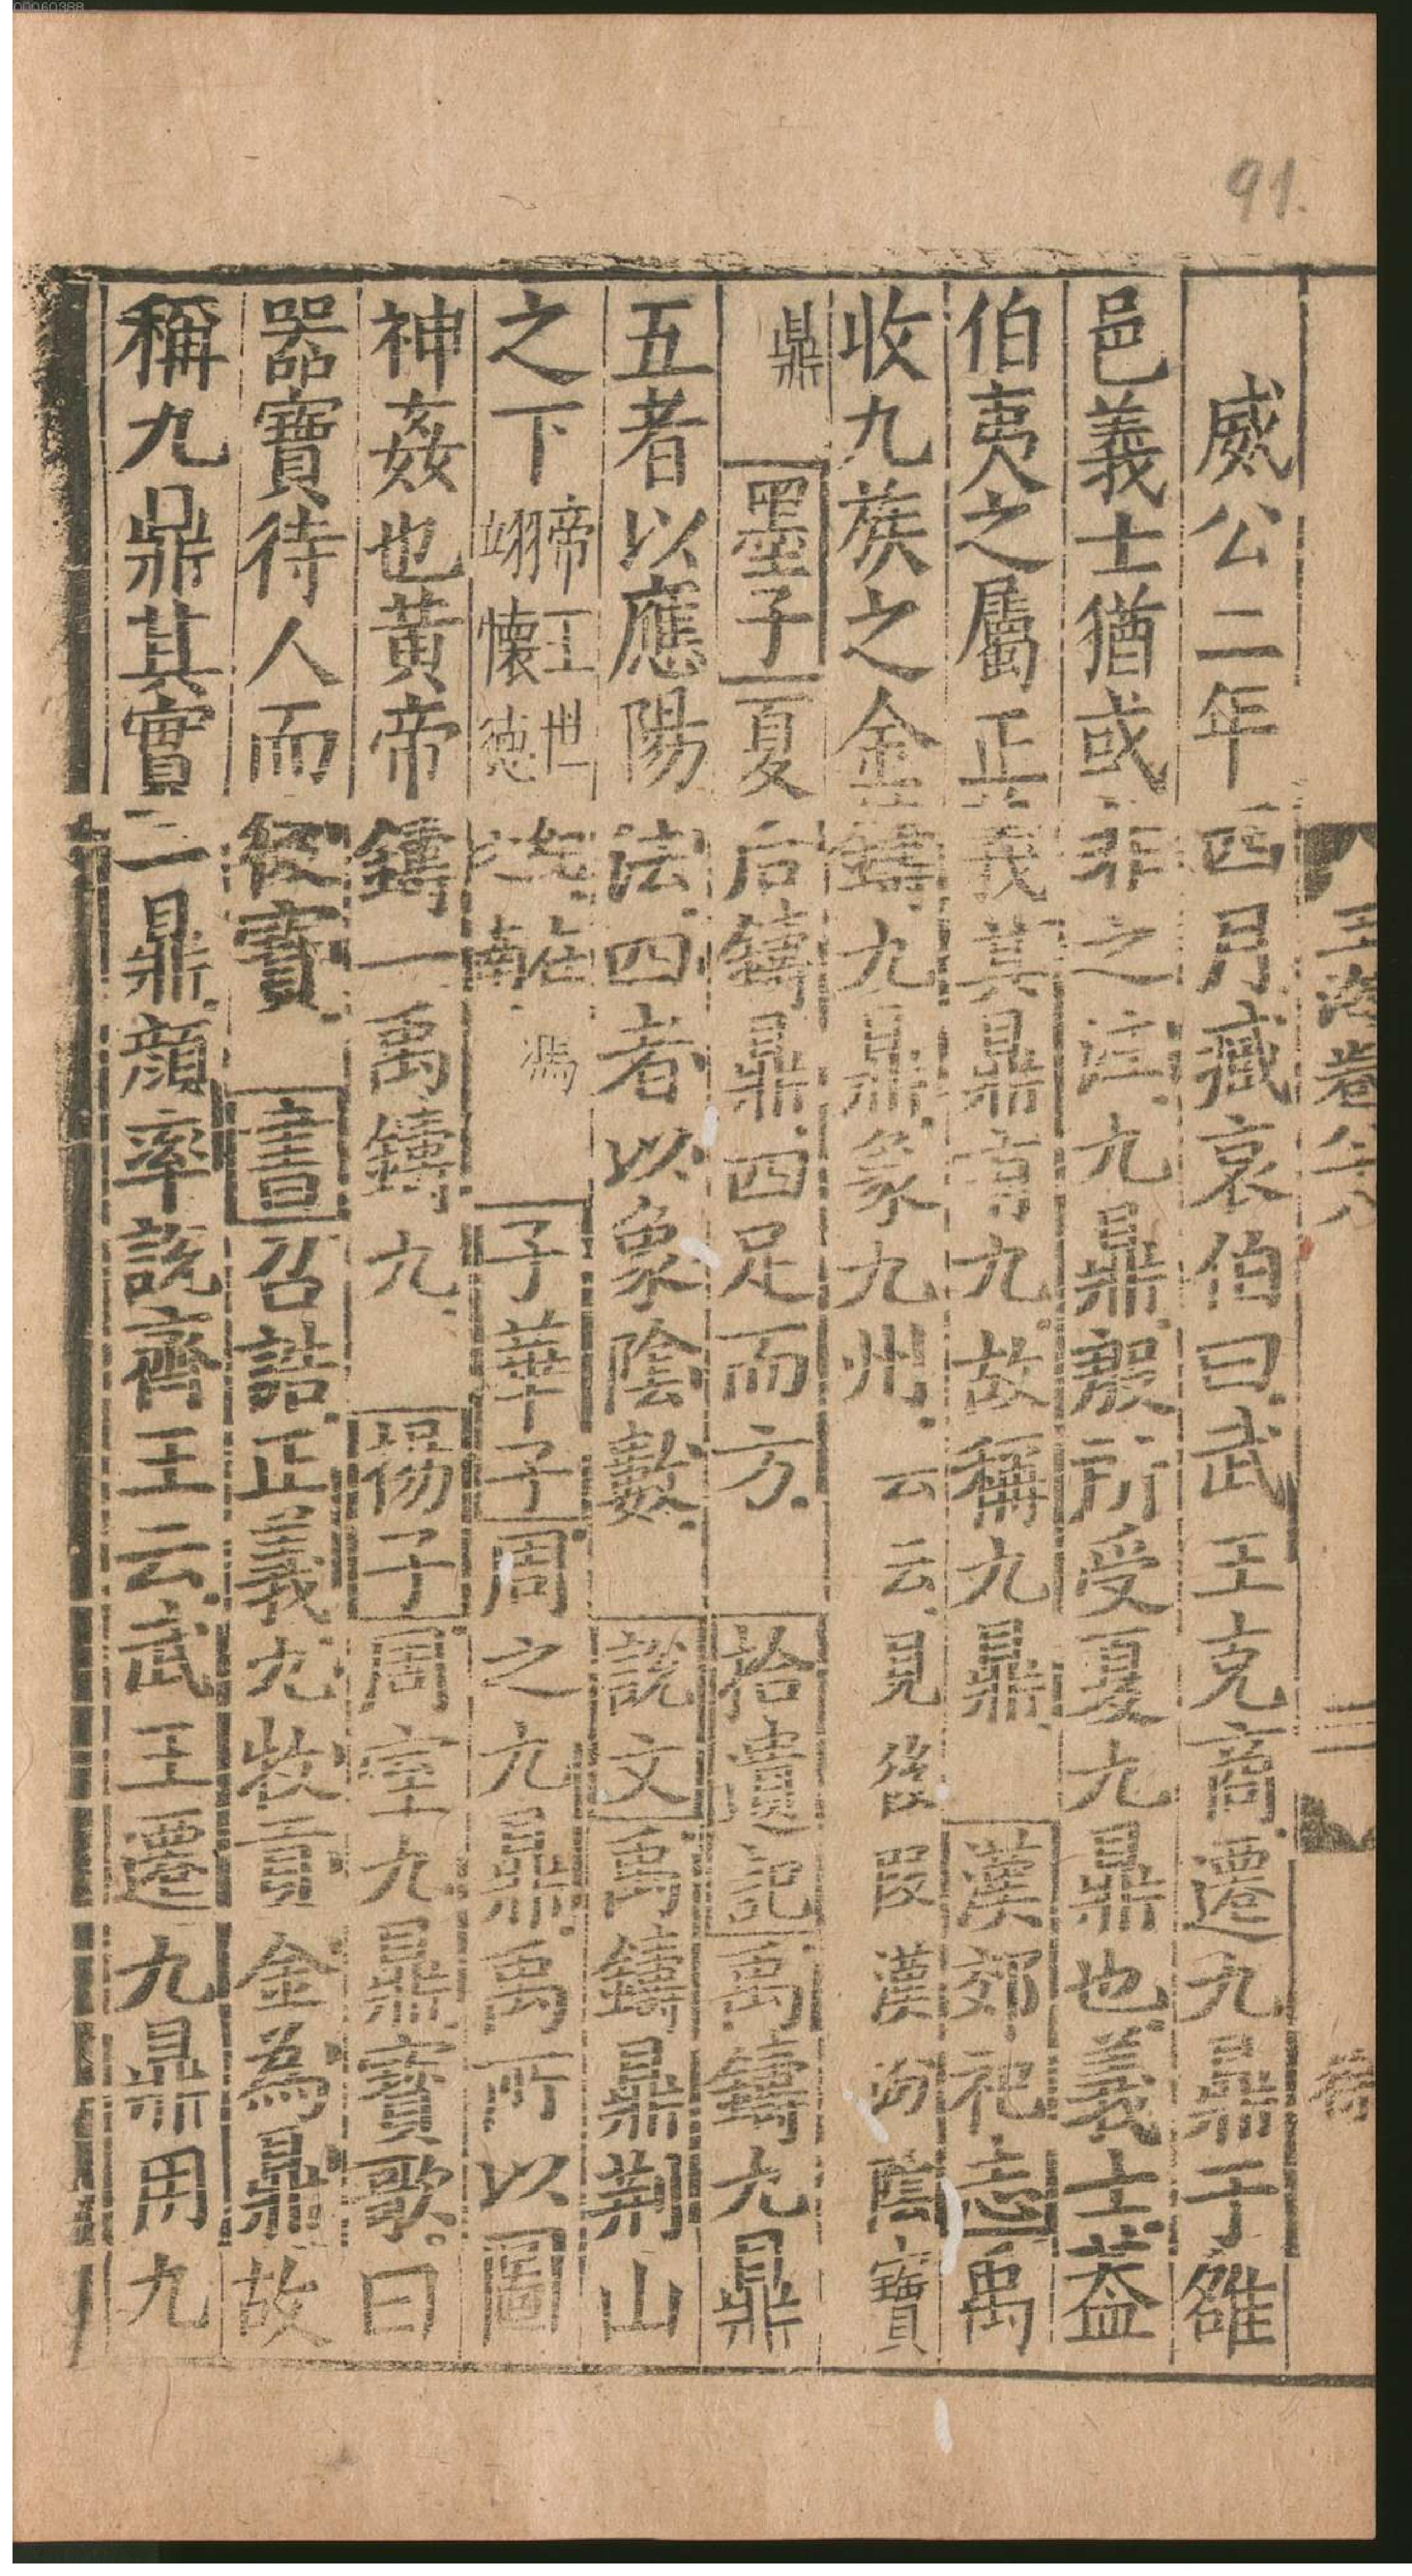 00060388
91.
玉海卷八十八 二
威公二年四月臧哀伯曰武王克商遷九鼎于雒
邑義士猶或非之注九鼎殷所受夏九鼎也義士蓋
伯夷之屬正義其鼎有九故稱九鼎 漢郊祀志禹
收九族之金鑄九鼎象九州云云見後段漢汾陰寶
鼎 墨子夏后鑄鼎四足而方 拾遺記禹鑄九鼎
五者以應陽法四者以象陰數 說文禹鑄鼎荊山
之下帝王世紀在馮翊懷德之南 子華子周之九鼎禹所以圖
神姦也黃帝鑄一禹鑄九 楊子周室九鼎寶歌曰
器寶待人而後寶 書召誥正義九牧貢金為鼎故
稱九鼎其實一鼎顏率說齊王云武王遷九鼎用九